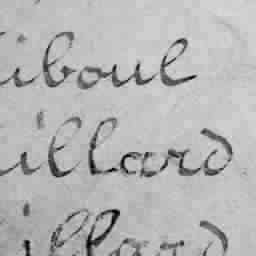 iboul
illard
illard